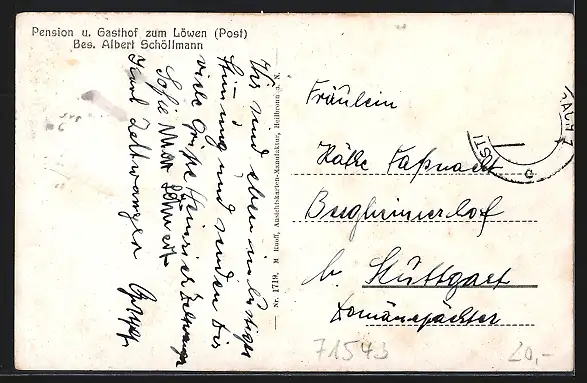 Pension u. Gasthof zum Löwen (Post)
Bes. Albert Schöllmann
Wir sind eben in lustiger
Stimmung und senden Dir
viele Grüße Heinrich Zeltwanger
Sofie
Karl Zeltwanger
Nr. 1719. M. Ruoff, Ansichtskarten-Manufaktur, Heilbronn a. N.
Fräulein
Käthe Faßnacht
Bergheimerhof
b. Stuttgart
Domänepächter
71543
20,-